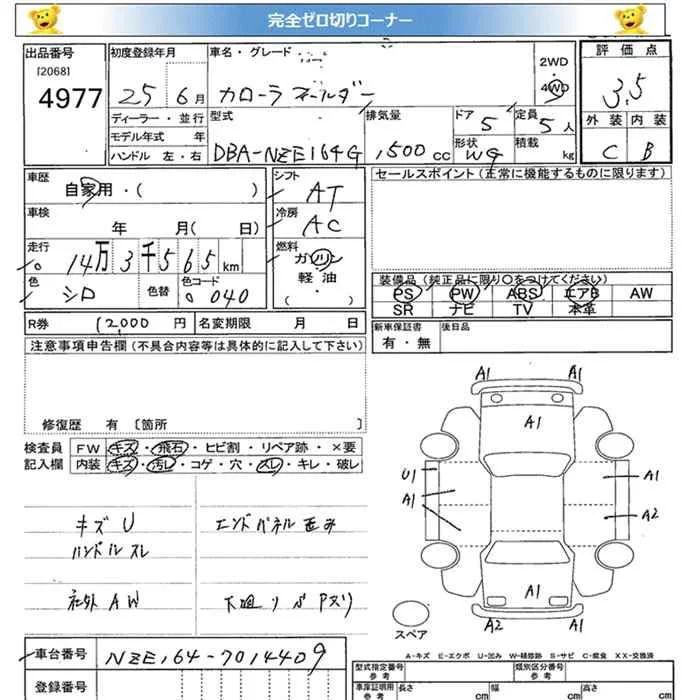 完全ゼロ切りコーナー
出品番号 初度登録年月 車名・グレード 評価点
[2068]
4977 25 6月 カローラ フィールダー 2WD・4WD 3.5
ディーラー・並行 型式 排気量 ドア 5 定員 5人 外装 内装
モデル年式 年
ハンドル 左・右 DBA-NZE164G 1,500cc 形状 WG 積載 kg C B
車歴 シフト セールスポイント(正常に機能するものに限ります)
自家用・( ) AT
車検 冷房
年 月(日) AC
走行 燃料
14万3千565km ガソリン
色 色替 色コード 軽油 装備品(純正品に限り○をつけてください)
シロ 040 ( ・ ) PS PW ABS エアB AW
SR ナビ TV 本革
R券 12,000円 名変期限 月 日 新車保証書 後日品
注意事項申告欄(不具合内容等は具体的に記入して下さい) 有・無
修復歴 有 〔箇所
検査員 FW キズ・飛石・ヒビ割・リペア跡・×要
記入欄 内装 キズ・汚レ・コゲ・穴・スレ・キレ・破レ
A1 A1
A1
U1 A1
A1 A2
キズ U エンドパネル歪み
ハンドルスレ
社外 AW 下廻り
A1
A2 A1
スペア
A-キズ E-エクボ U-凹み W-補修跡 S-サビ C-腐食 XX-交換済
車台番号 NZE164-7014409
型式指定番号 参考 類別区分番号 参考
登録番号 車庫証明用 参考 長さ cm 幅 cm 高さ cm